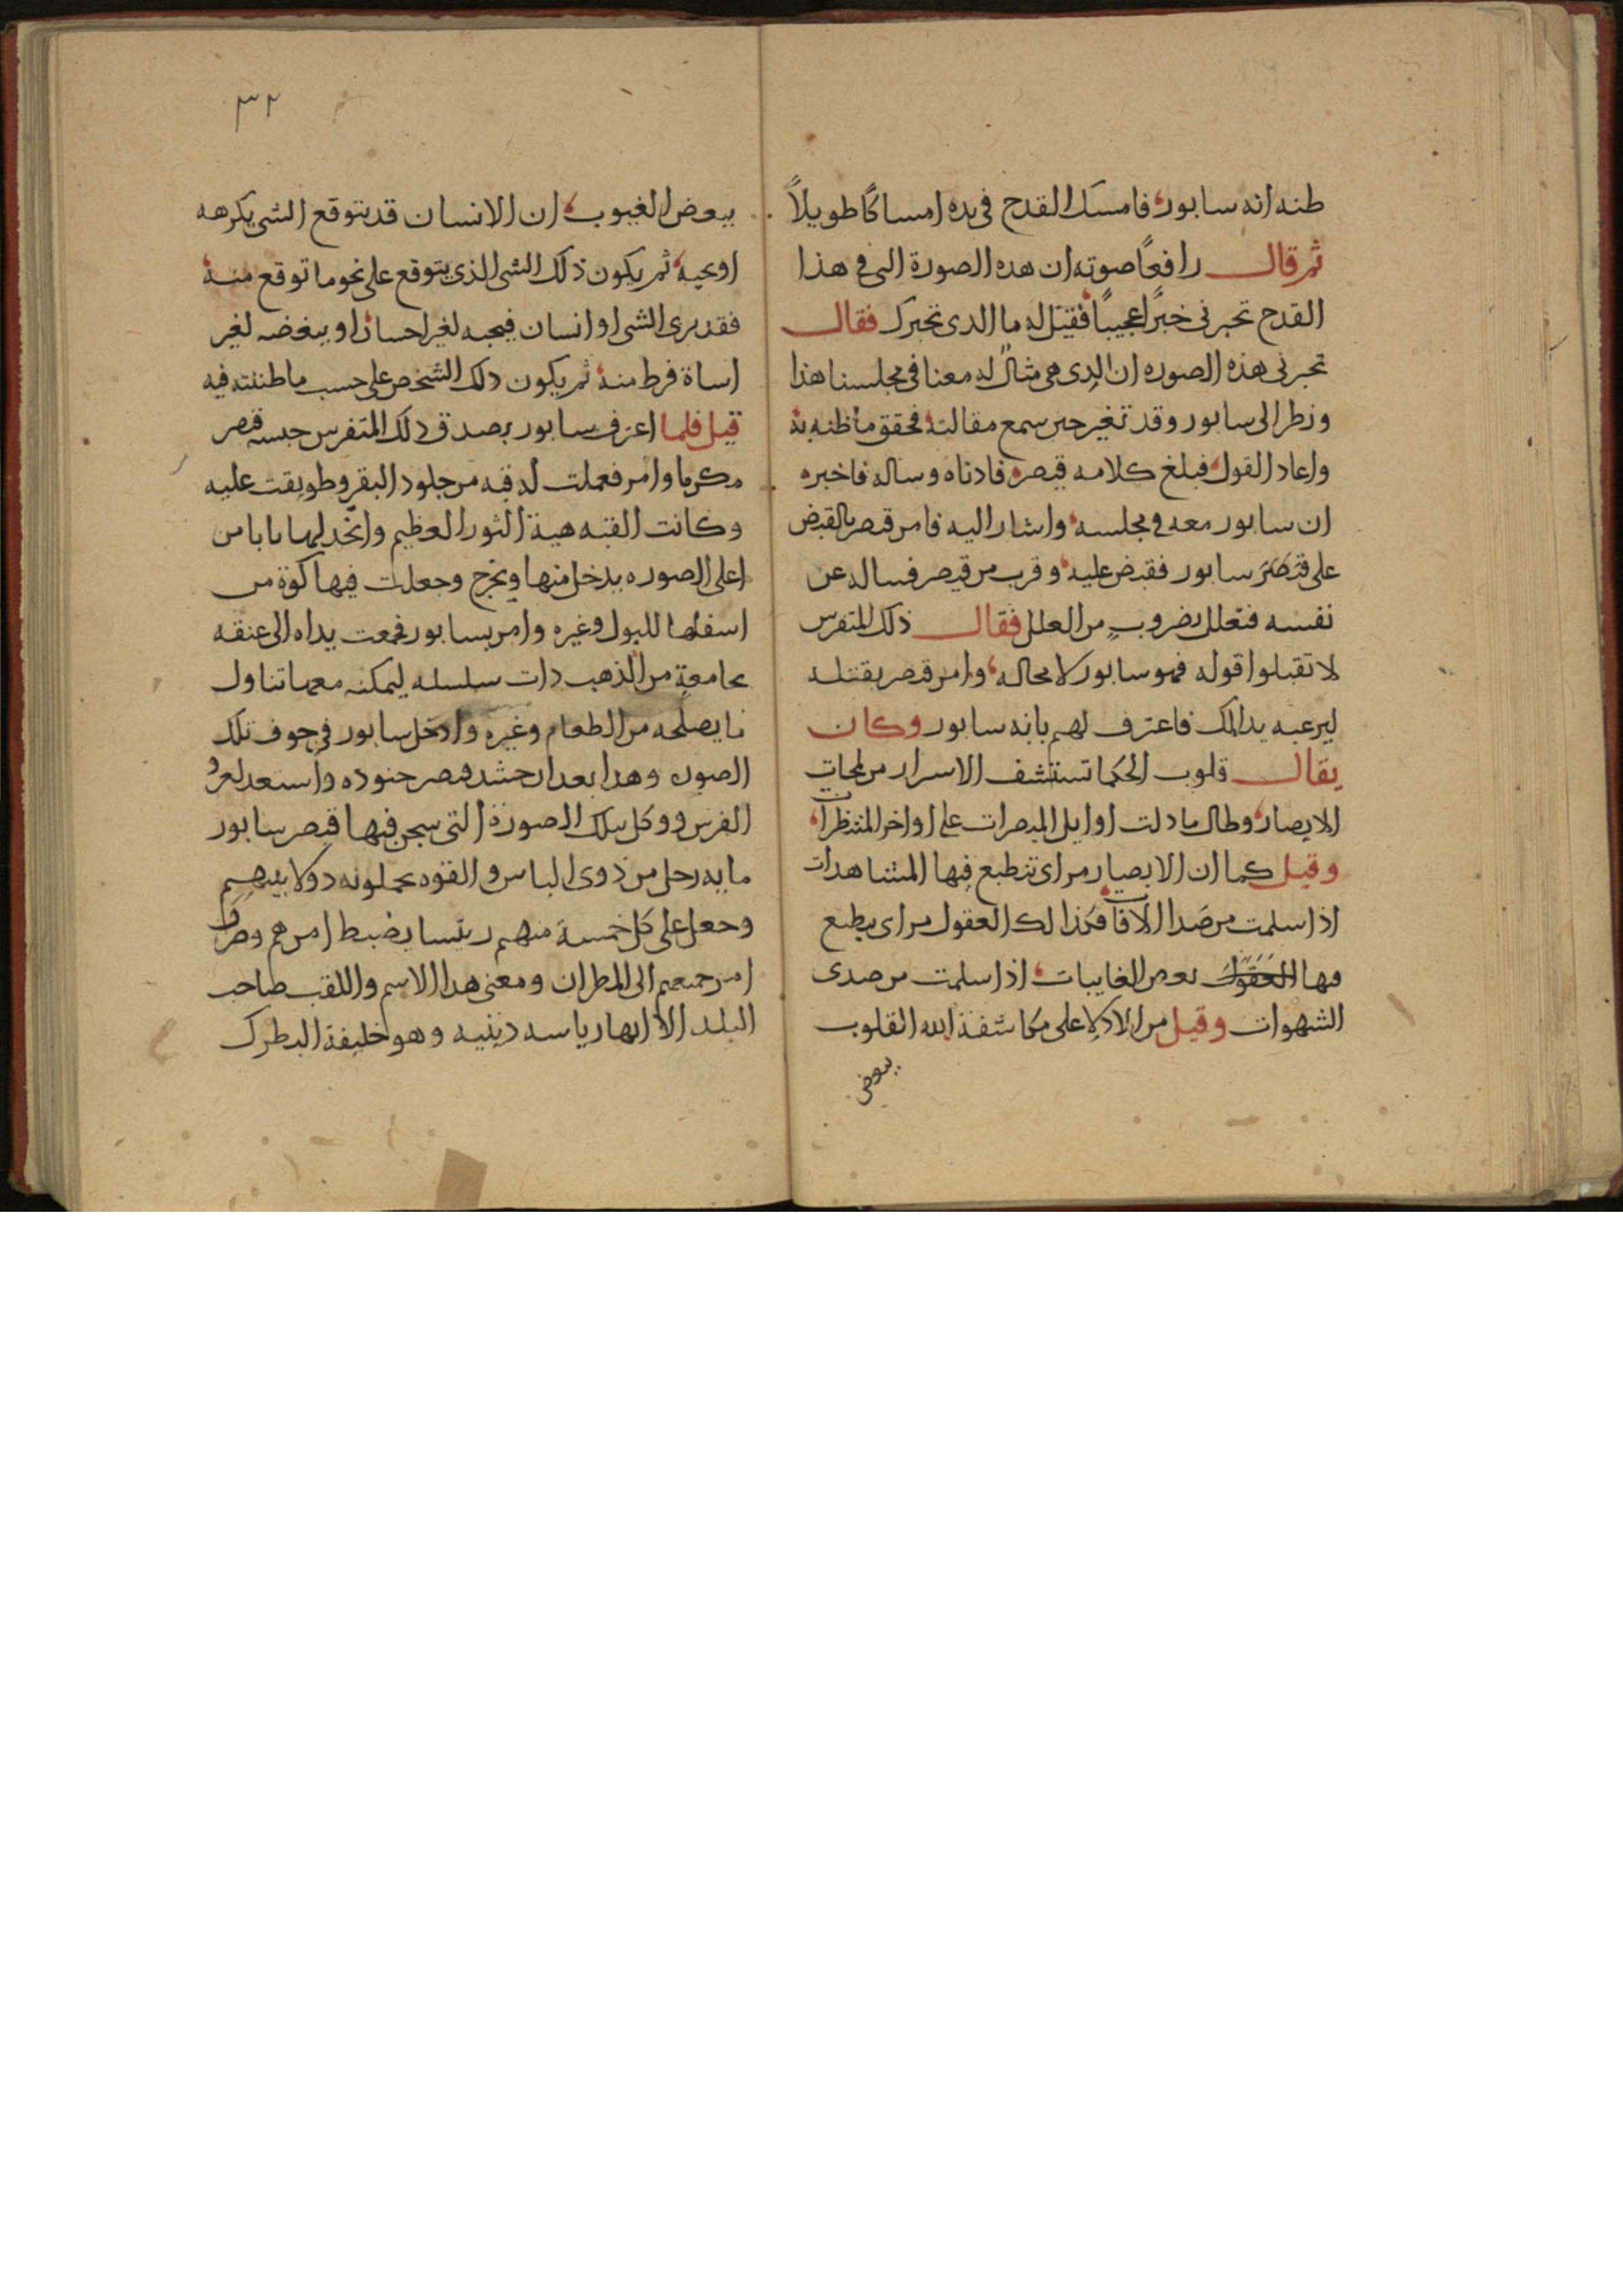 ظنه انه سابور فامسك القدح فى يده امساكًا طويلاً
ثم قال رافعًا صوته ان هذه الصورة التى فى هذا
القدح تخبرنى خبرًا عجيبًا فقيل له ما الذى تخبرك فقال
تخبرنى هذه الصوره ان الذى هى مثالٌ له معنا فى مجلسنا هذا
ونظر الى سابور وقد تغير حين سمع مقالته فحقق ما ظنه به
واعاد القول فبلغ كلامه قيصر فادناه وساله فاخبره
ان سابور معه فى مجلسه واشار اليه فامر قيصر بالقبض
على سابور فقبض عليه وقرب من قيصر فساله عن
نفسه فتعلل بضروبٍ من العلل فقال ذلك المتفرس
لا تقبلوا قوله فهو سابور لا محاله وامر قيصر بقتله
ليرعبه بذلك فاعترف لهم بانه سابور وكان
يقال قلوب الحكما تستشف الاسرار من لمحات
الابصار وطال ما دلت اوايل المبصرات على اواخر المنتظرات
وقيل كما ان الابصار مراى تنطبع فيها المشاهدات
اذا سلمت من صَدا الآفات فكذا لك العقول مراى ينطبع
فيها بعض الغايبات اذا سلمت من صدى
الشهوات وقيل من الادلا على مكاشفة الله القلوب
ببعض
٣٢
ببعض الغيوب ان الانسان قد يتوقع الشى يكرهه
او يحبه ثم يكون ذلك الشى الذى يتوقع على نحو ما توقع منه
فقد يرى الشى او انسان فيحبه لغير احسان او يبغضه لغير
اساة فرط منه ثم يكون ذلك الشخص على حسب ما ظننته فيه
قيل فلما اعترف سابور بصدق ذلك المتفرس حبسه قيصر
مكرما وامر فعملت له قبه من جلود البقر وطوبقت عليه
وكانت القبه هية الثور العظيم واتخذ لها بابا من
اعلى الصوره يدخل منها ويخرج وجعلت فيها كوة من
اسفلها للبول وغيره وامر بسابور فجمعت يداه الى عنقه
بجامعةٍ من الذهب ذات سلسله ليمكنه معها تناول
ما يصلحه من الطعام وغيره وادخل سابور فى جوف تلك
الصوره وهذا بعد ان حشد قيصر جنوده واستعد لغزو
الفرس ووكل بتلك الصورة التى سجن فيها قيصر سابور
مايه رجل من ذوى الباس والقوه يحملونه دولا بينهم
وجعل على كل خمسة منهم رئيسا يضبط امرهم وصرف
امر جميعهم الى المطران ومعنى هذا الاسم واللقب صاحب
البلد الا انها رياسه دينيه وهو خليفة البطرك